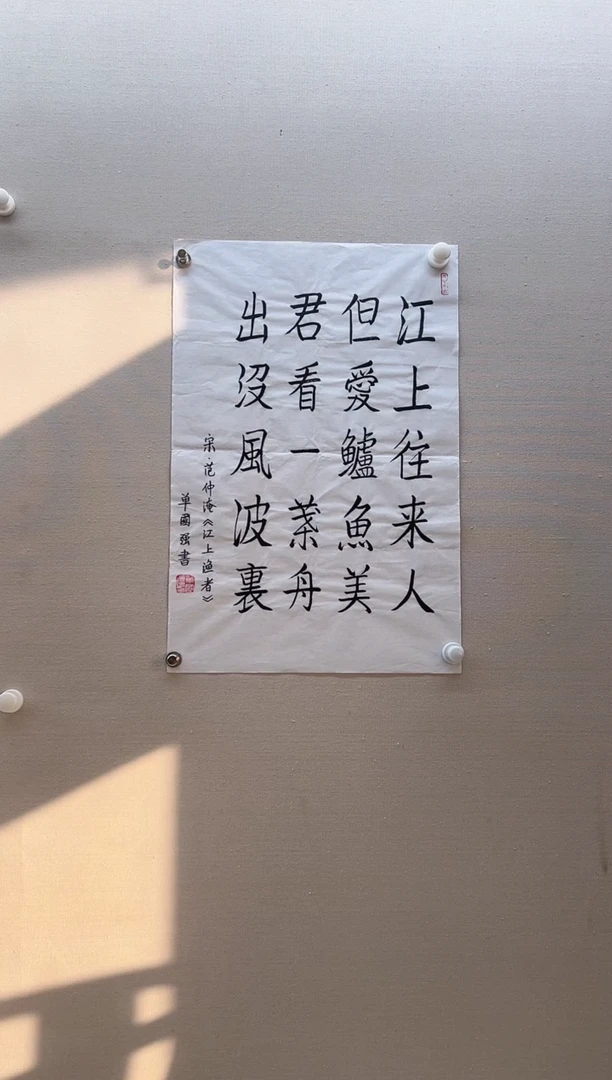 江上往来人
但愛鱸魚美
君看一葉舟
出没風波裏
宋·范仲淹《江上渔者》
单國强書